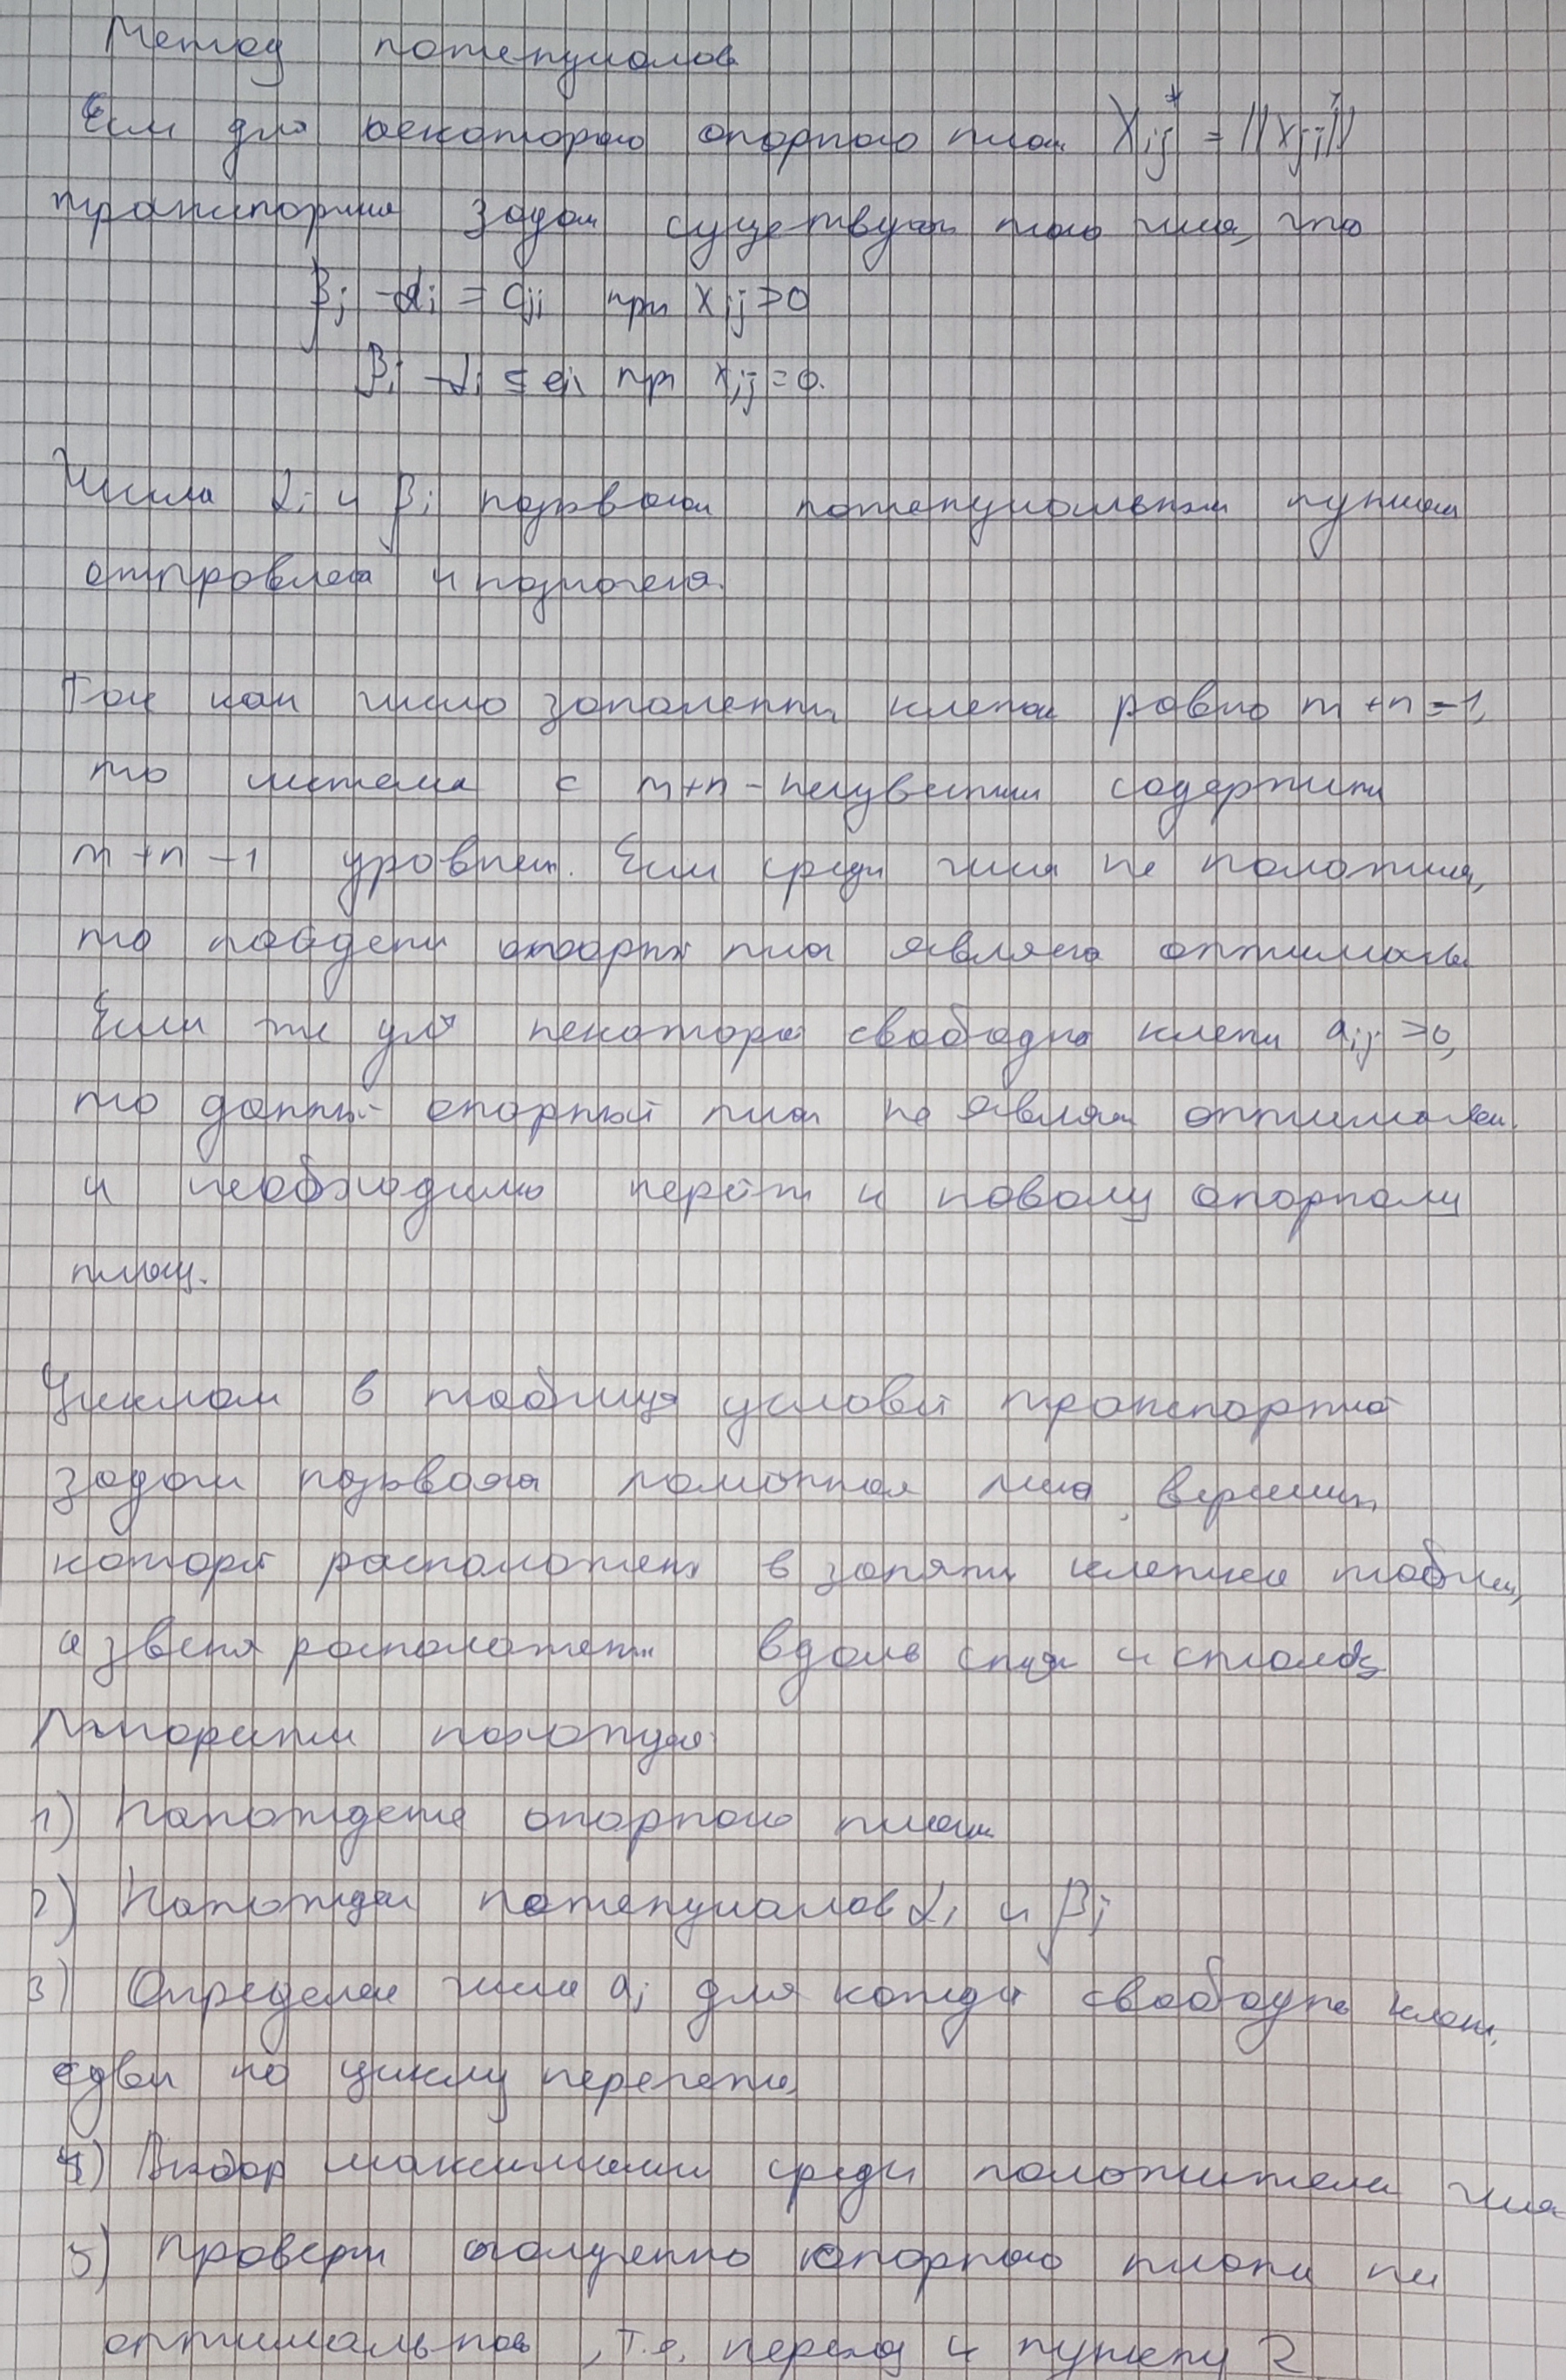 Метод потенциалов
Если для некоторого опорного план Xij* = ||xij*||
транспортная задачи существуют такие числа, что
βj - αi = cji при xij > 0
βj - αi ≤ cji при xij = 0.
Числа αi и βj называют потенциальным пунктам
отправлена и назначена.
Так как число заполненных клеток равно m+n-1,
то система с m+n - неизвестными содержит
m+n-1 уровнен. Если среди числа не положит,
то найдени опорный план являеся оптимальн
Если же для некоторо свободно клетки aij > 0,
то данный опорный план не являя оптимален.
и необходимо перейти к новому опорному
плану.
Циклом в таблица условий транспортной
задачи называя ломанная линия, вершин
которй расположен в заняти клетках таблиц,
а звеня расположен вдоль строк и столбц
Алгоритм
1) Нахождение опорного план
2) Нахожден потенциалов αi и βj
3) Определен числа aij для каждй свободно клет.
сдвиг по циклу
4) Выбор максимальн среди положителн числа
5) Проверки полученно опорного плана на
оптимальнось, т.е. переход к пункту 2